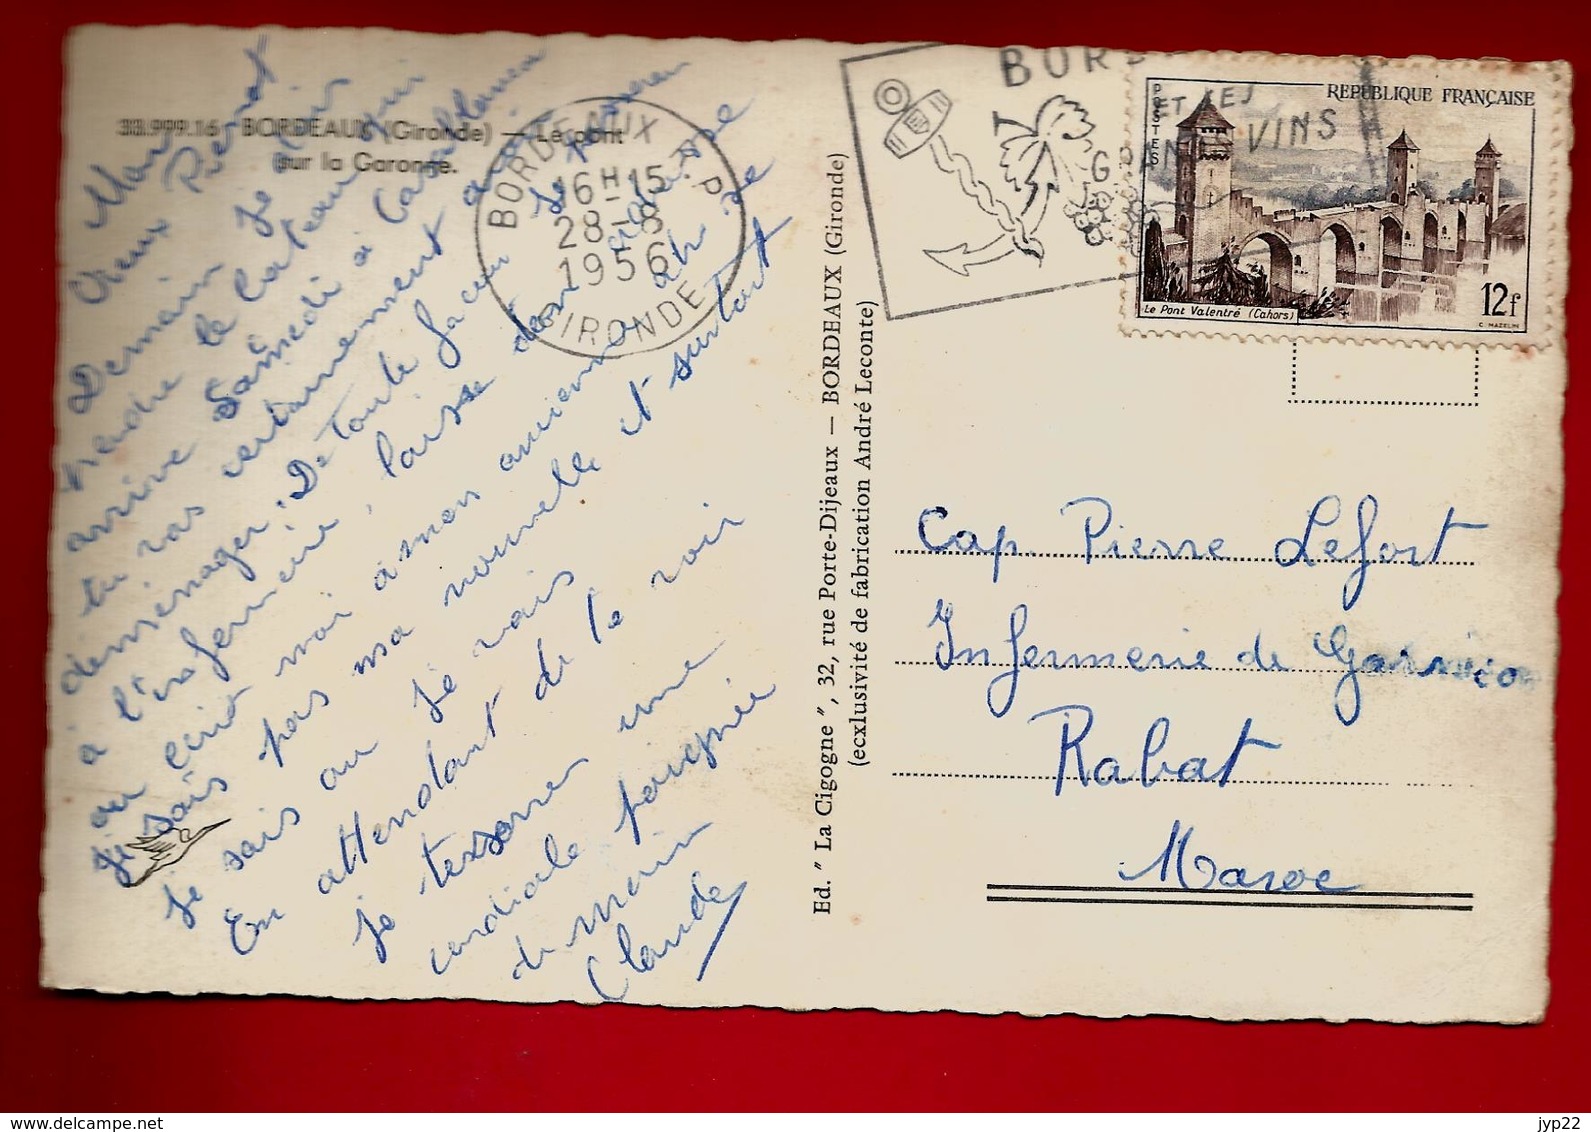 33.999.16 - BORDEAUX (Gironde) — Le pont
sur la Garonne.
Mon
vieux Pierrot
Demain je dois
prendre le bateau qui
arrive Samedi à Casablanca
tu vas certainement
déménager. De toute façon je passerai
à l'infermerie, laisse ton adresse
ou écrit moi à mon ancienne
Je sais pas ma nouvelle et surtout
Je sais où je vais
En attendant de te voir
Je te serre une
cordiale poignée
de main
Claude
BORDEAUX R.P.
16H15
28-8
1956
GIRONDE
BORD
ET SES
GRANDS VINS
POSTES
REPUBLIQUE FRANÇAISE
Le Pont Valentré (Cahors)
12f
C. MAZELIN
Ed. "La Cigogne", 32, rue Porte-Dijeaux — BORDEAUX (Gironde)
(ecxlusivité de fabrication André Leconte)
Cap. Pierre Lefort
Infermerie de Garnison
Rabat
Maroc
jyp22